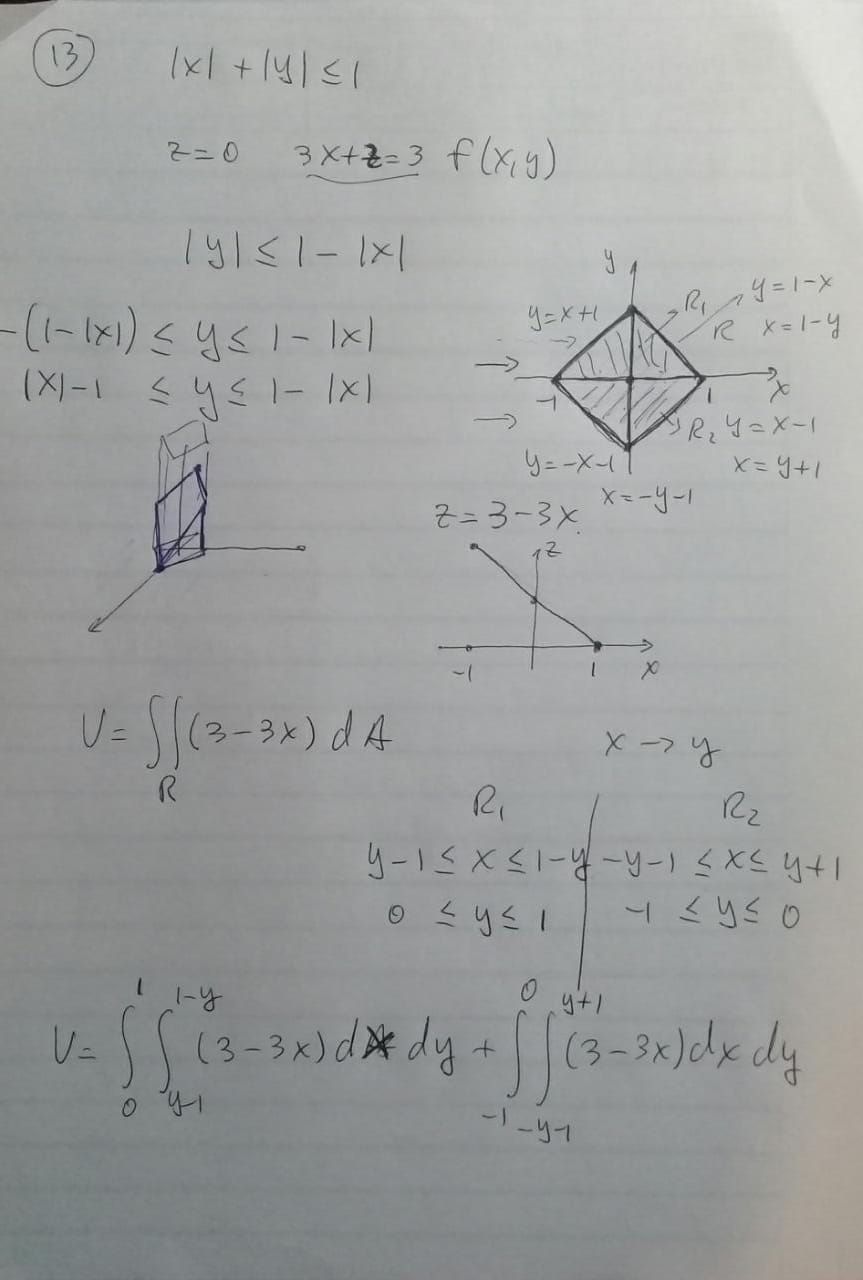 13 |x| + |y| ≤ 1
z=0 3x+z=3 f(x,y)
|y| ≤ 1 - |x|
-(1-|x|) ≤ y ≤ 1 - |x|
|x|-1 ≤ y ≤ 1 - |x|
y
y=x+1
R₁
y=1-x
R x=1-y
-1
1
x
R₂ y=x-1
y=-x-1
x=y+1
x=-y-1
z=3-3x
z
-1
1
x
V= ∬_R (3-3x) dA
x → y
R₁ R₂
y-1 ≤ x ≤ 1-y -y-1 ≤ x ≤ y+1
0 ≤ y ≤ 1 -1 ≤ y ≤ 0
V= ∫₀¹ ∫_{y-1}^{1-y} (3-3x) dx dy + ∫_{-1}^{0} ∫_{-y-1}^{y+1} (3-3x) dx dy